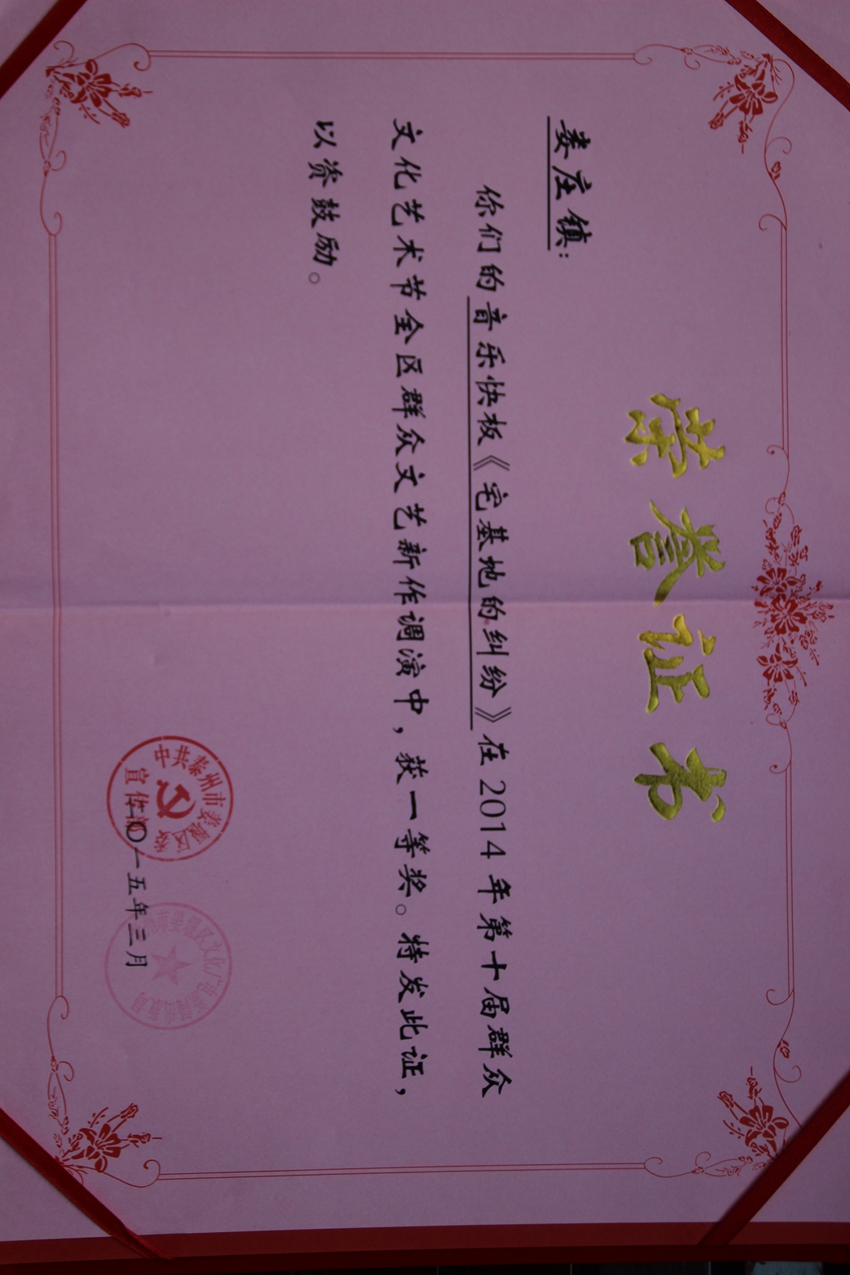 荣誉证书
娄庄镇:
你们的音乐快板《宅基地的纠纷》在2014年第十届群众
文化艺术节全区群众文艺新作调演中,获一等奖。特发此证,
以资鼓励。
中共泰州市姜堰区委
宣传部
二〇一五年三月